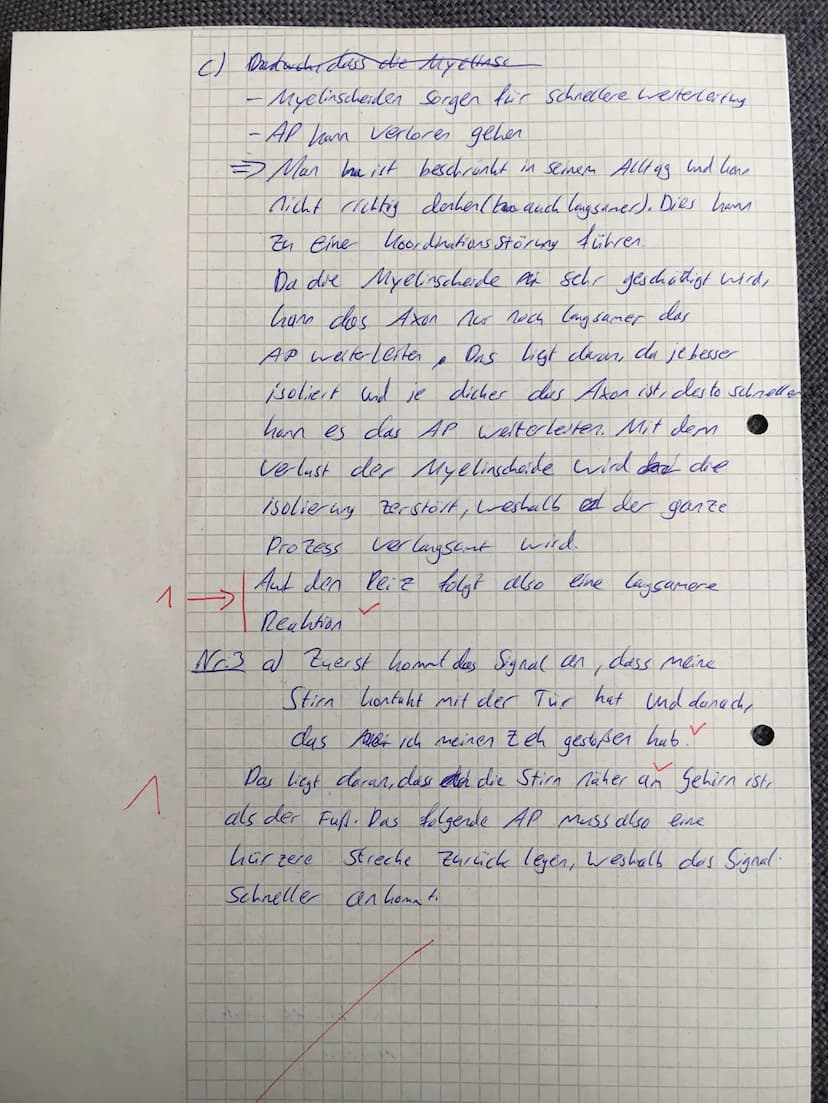 c) Dadurch, dass die Myelinsc
- Myelinscheiden sorgen für schnellere Weiterleitung
- AP kann verloren gehen
=> Man ist beschränkt in seinem Alltag und kann
nicht richtig denken (auch langsamer). Dies kann
zu einer Koordinationsstörung führen.
Da die Myelinscheide sehr geschädigt wird,
kann das Axon nur noch langsamer das
AP weiterleiten. Das liegt daran, da je besser
isoliert und je dicker das Axon ist, desto schneller
kann es das AP weiterleiten. Mit dem
verlust der Myelinscheide wird die
isolierung zerstört, weshalb der ganze
Prozess verlangsamt wird.
1 → Auf den Reiz folgt also eine langsamere
Reaktion ✓
Nr.3 a) Zuerst kommt das Signal an, dass meine
Stirn kontakt mit der Tür hat und danach,
das ich meinen Zeh gestoßen hab. ✓
Das liegt daran, das die Stirn näher an ✓ Gehirn ist,
1 als der Fuß. Das folgende AP muss also eine
kürzere Strecke zurück legen, weshalb das Signal
schneller ankommt.